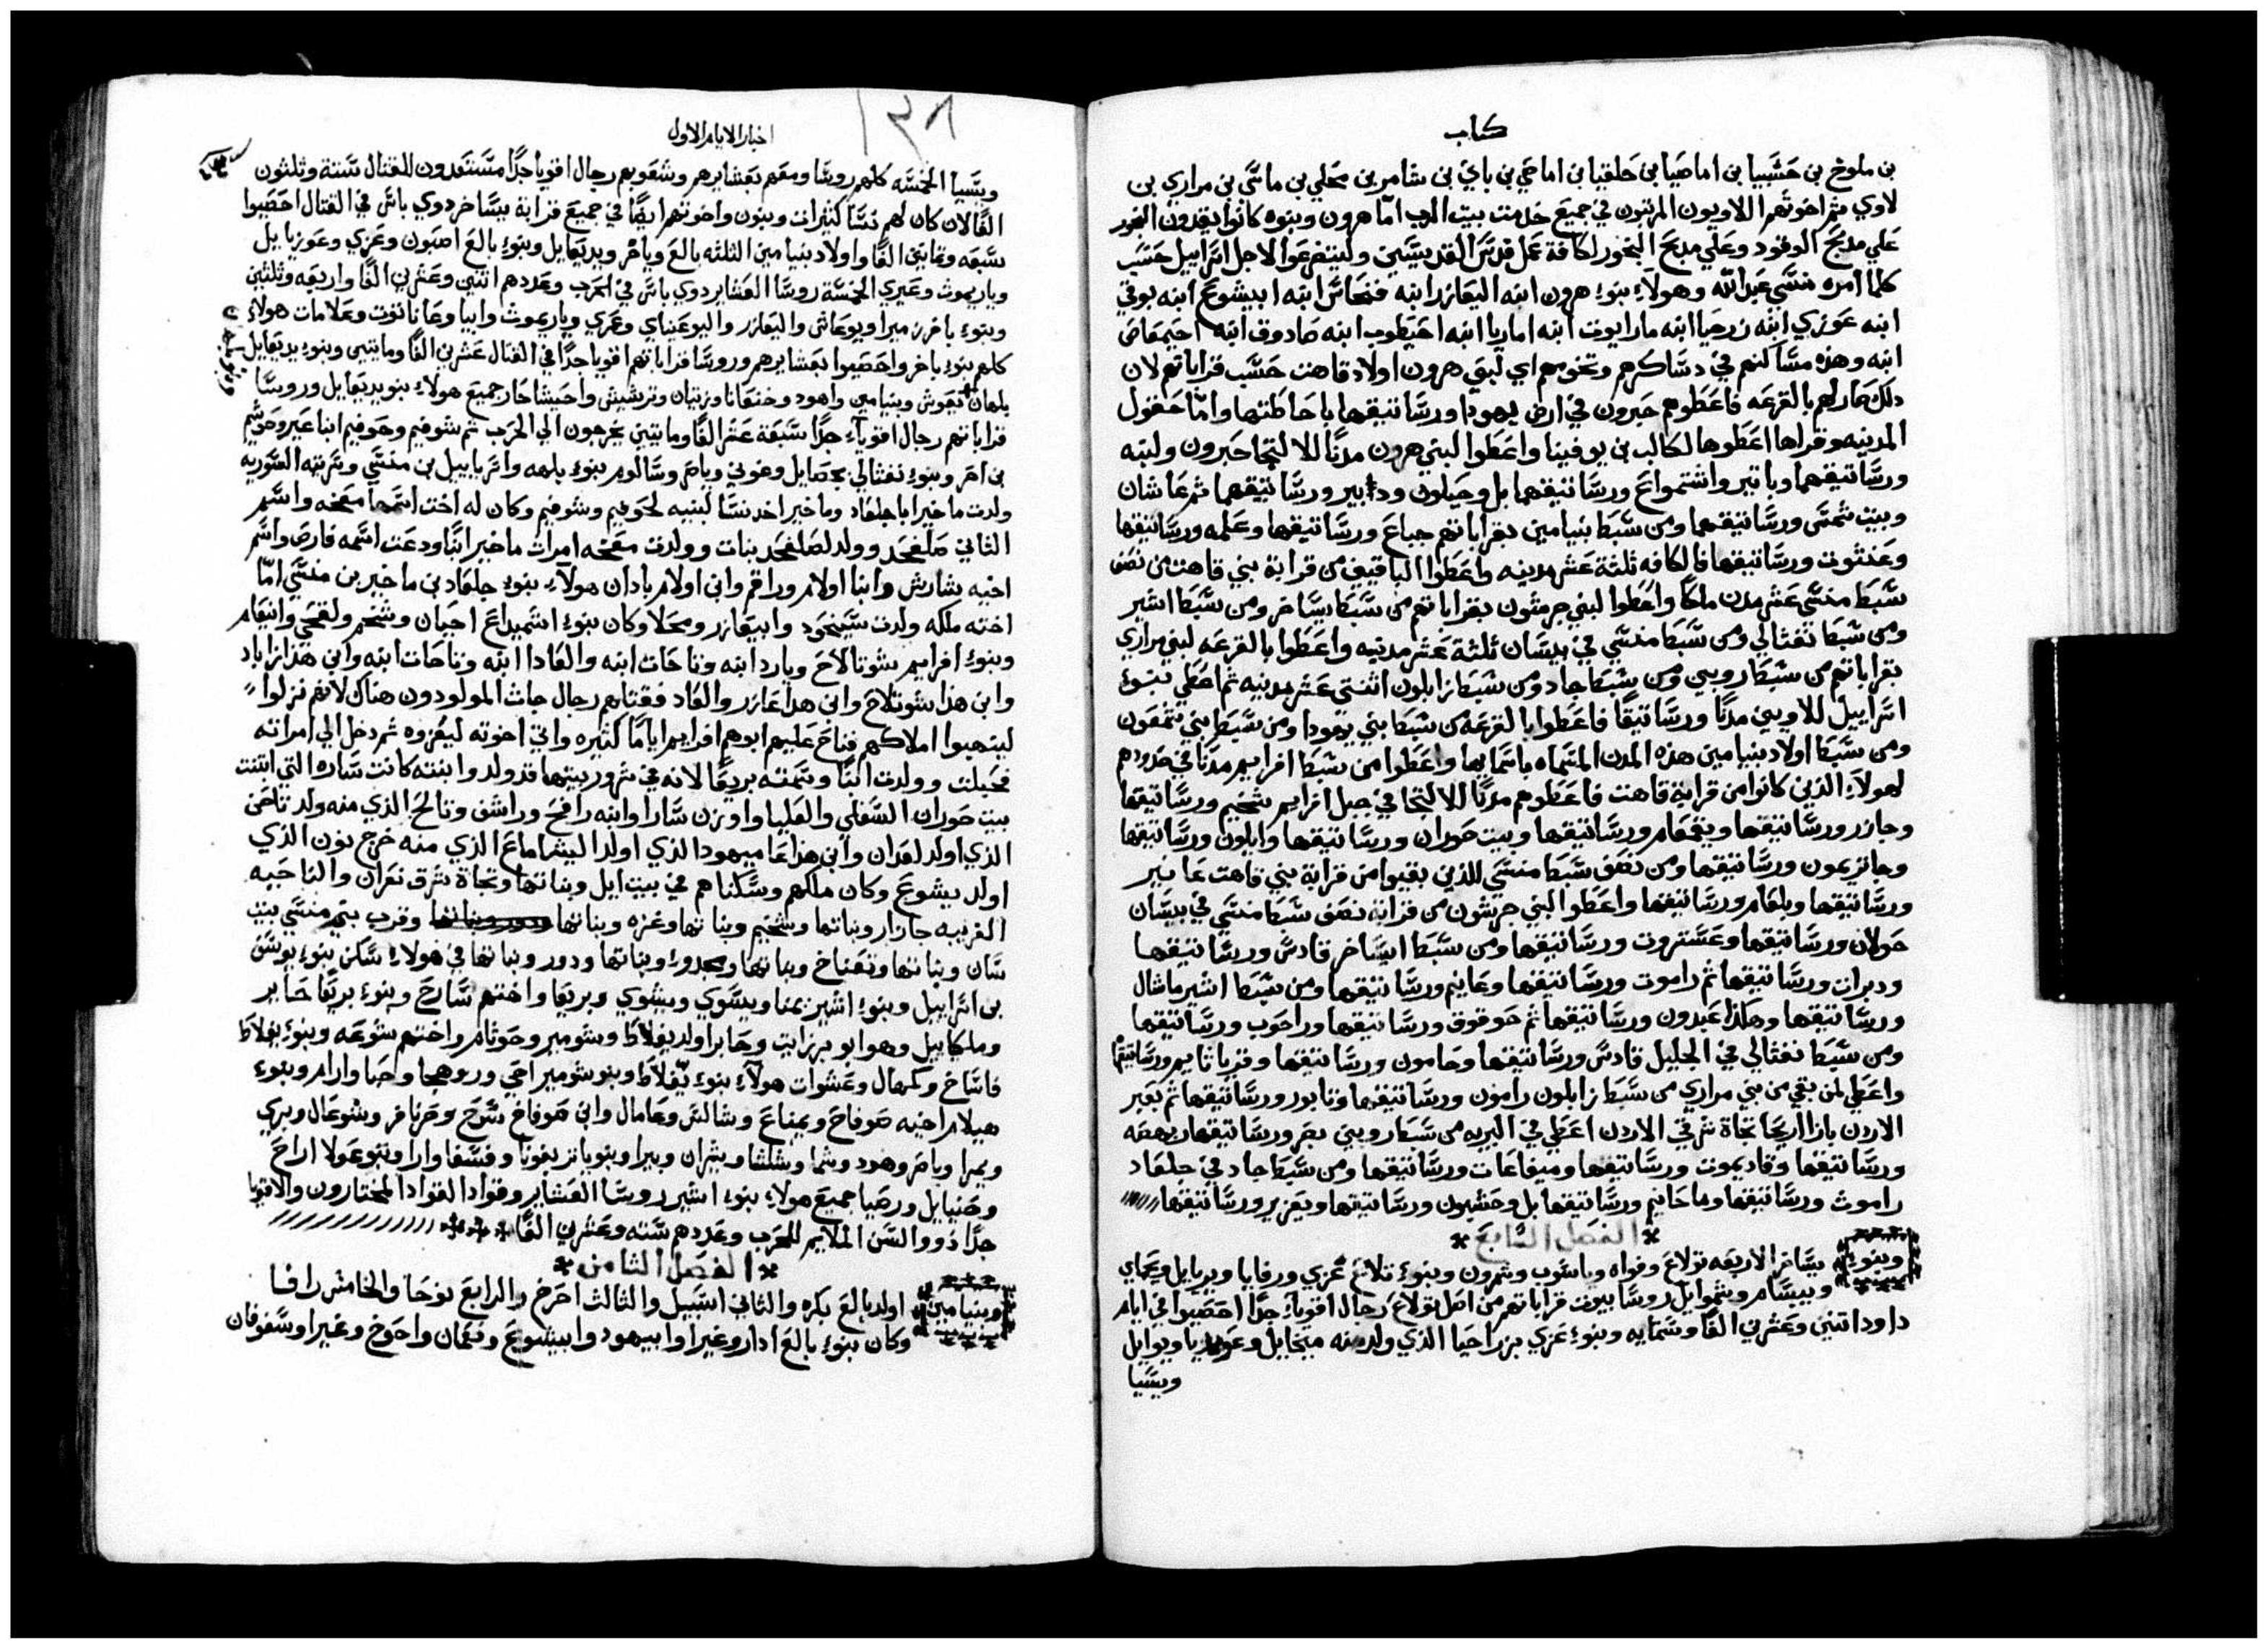 كتاب
بن ملوخ بن حشبيا بن اماصيا بن حلقيا بن اماصي بن باني بن شامر بن محلي بن ماشي بن مراري بن
لاوي ثم اخوتهم اللاويون المرتبون في جميع خدمت بيت الرب اما هرون وبنوه كانوا يقدون البخور
علي مدبح الوقود وعلي مدبح البخور لكافة عمل قدس القديسين وليتضرعوا لاجل اسراييل حسب
كلما امره منسي عبد الله وهولاء بنوء هرون ابنه اليعازر ابنه فنحاس ابنه ابيشوع ابنه بوقي
ابنه عوزي ابنه زرحيا ابنه مارايوت ابنه اماريا ابنه احيطوب ابنه صادوق ابنه احيمعاص
ابنه وهذه مساكنهم في دساكرهم وتخومهم اي لبني هرون اولاد قاهت حسب قراباتهم لان
دلك صار لهم بالقرعه فاعطوهم حبرون في ارض يهودا ورساتيقها باحاطتها واما حقول
المدينه وقراها اعطوها لكالب بن يوفينا واعطوا لبني هرون مدنا للالتجا حبرون ولبنه
ورساتيقهما وياتير واشتمواع ورساتيقهما بل وحيلون ودابير ورساتيقهما ثم عاشان
وبيت شمس ورساتيقهما ومن سبط بنيامين بقراباتهم جباع ورساتيقها وعلمه ورساتيقها
وعنتوت ورساتيقها فالكافه تلثة عشر مدينه واعطوا الباقيين من قرابة بني قاهت من نصف
سبط منسي عشر مدن ملكا واعطوا لبني جرشون بقراباتهم من سبط يساخر ومن سبط اشير
ومن سبط نفتالي ومن سبط منسي في بيسان تلثة عشر مدينه واعطوا بالقرعه لبني مراري
بقراباتهم من سبط روبين ومن سبط جاد ومن سبط زابلون اثنتي عشر مدينه ثم اعطي بنوء
اسراييل للاويين مدنا ورساتيقا فاعطوا بالقرعه من سبط بني يهودا ومن سبط بني شمعون
ومن سبط اولاد بنيامين هذه المدن المسماه باسمايها واعطوا من سبط افرايم مدنا في حدودهم
لهولاء الذين كانوا من قرابة قاهت فاعطوهم مدنا للالتجا في جبل افرايم شخيم ورساتيقها
وجازر ورساتيقها ويقمعام ورساتيقها وبيت حوران ورساتيقها وايلون ورساتيقها
وجاتريمون ورساتيقها ومن نصف سبط منسي للذين بقيوا من قرابة بني قاهت عانير
ورساتيقها وبلعام ورساتيقها واعطوا لبني جرشون من قرابة نصف سبط منسي في بيسان
جولان ورساتيقها وعستروت ورساتيقها ومن سبط ايساخر قادس ورساتيقها
ودبرات ورساتيقها ثم راموت ورساتيقها وعانيم ورساتيقها ومن سبط اشير ماشال
ورساتيقها وهكذا عبدون ورساتيقها ثم حوقوق ورساتيقها وراحوب ورساتيقها
ومن سبط نفتالي في الجليل قادس ورساتيقها وحامون ورساتيقها وقرياتايم ورساتيقها
واعطي لمن بقي من بني مراري من سبط زابلون رامون ورساتيقها وتابور ورساتيقها ثم بعبر
الاردن بازا اريحا تجاة شرقي الاردن اعطي في البريه من سبط روبين بصر ورساتيقها ويهصه
ورساتيقها وقاديموت ورساتيقها وميفاعات ورساتيقها ومن سبط جاد في جلعاد
راموث ورساتيقها وماحانيم ورساتيقها بل وحشبون ورساتيقها ويعزير ورساتيقها
الفصل السابع
وبنوء يساخر الاربعه تولاع وفواه وياشوب وشمرون وبنوء تلاع عزي ورفايا ويريايل ويحماي
ويبسام وشموايل روسا بيوت قراباتهم من اصل تولاع رجال اقوياء جدا احصيوا في ايام
داود اتنين وعشرين الفا وستمايه وبنوء عزي يزراحيا الذي ولد منه ميخايل وعوبديا ويوايل
ويسيا
١٣٨
اخبار الايام الاول
ويسيا الخمسه كلهم روسا ومعهم بعشايرهم وشعوبهم رجال اقويا جدا مستعدون للقتال ستة وتلثون
الفا لان كان لهم نسا كثيرات وبنون واخوتهم ايضا في جميع قرابة يساخر دوي باس في القتال احصيوا
سبعه وتمانين الفا واولاد بنيامين الثلثه بالع وباخر ويديعايل وبنوء بالع اصبون وعزي وعوزيايل
وياريموت وعيري الخمسة روسا العشاير دوي باس في الحرب وعددهم اتنين وعشرين الفا واربعه وتلتين
وبنوء باخر زميرا ويوعاش واليعازر واليوعيناي وعمري وياريموت وابيا وعاناتوت وعلامات هولاء
كلهم بنوء باخر واحصيوا بعشايرهم وروسا قراباتهم اقويا جدا في القتال عشرين الفا ومايتين وبنوء يديعايل
بلهان يعوش وبنيامين واهود وخنعانا وزيتان وترشيش واحيشاحار جميع هولاء بنو يديعايل وروسا
قراباتهم رجال اقوياء جدا سبعة عشر الفا ومايتين يخرجون الي الحرب ثم شوفيم وحوفيم ابنا عير وحوشيم
بن احر وبنوء نفتالي يحصايل وغوني ويامر وسالوم بنوء بلهه واسراييل بن منسي وسريته السوريه
ولدت ماخير ابا جلعاد وماخير اخد نسا لبنيه لحوفيم وشوفيم وكان له اخت اسمها معخه واسم
الثاني صلفحد وولد لصلفحد بنات وولدت معخه امرات ماخير ابنا ودعت اسمه فارص واسم
اخيه شارش وابنا اولام وراقم وابن اولام بادان هولاء بنوء جلعاد بن ماخير بن منسي اما
اخته ملكه ولدت سينحود وابيعازر ومحلا وكان بنوء اشميداع احيان وشخم ولقحي وانيعام
وبنوء افرايم شوتالاح وبارد ابنه وتاحات ابنه والعادا ابنه وتاحات ابنه وابن هذا زاباد
وابن هذا شوتلاح وابن هذا عازر والعاد فقتلهم رجال جات المولودون هناك لانهم نزلوا
لينهبوا املاكهم فناح عليهم ابوهم افرايم اياما كثيره واتي اخوته ليعزوه ثم دخل الي امراته
فحبلت وولدت ابنا وسمته بريعا لانه في شرور بيتها قد ولد وابنته كانت ساره التي ابتنت
بيت حوران السفلي والعليا واوزن سارا وابنه رافح وراشف وتالح الذي منه ولد تاحن
الذي اولد لعدان وابن هذا عاميهود الذي اولد اليشاماع الذي منه خرج نون الذي
اولد يشوع وكان ملكهم وسكناهم في بيت ايل وبناتها وتجاة شرق نعران والناحيه
الغربيه جازار وبناتها وشخيم وبناتها وغزه وبناتها وقرب بني منسي بيت
سان وبناتها وتعناخ وبناتها ومجدوء وبناتها ودور وبناتها في هولاء سكن بنوء يوسف
بن اسراييل وبنوء اشير يمنا ويسوي ويشوي وبريعا واختهم سارح وبنوء بريعا حابر
وملكاييل وهو ابو برزايت وحابر اولد يفلاط وشومير وحوثام واختهم شوعه وبنوء يفلاط
فاساخ وكمهال وعشوات هولاء بنوء يفلاط وبنو شومير احي وروهجا وحبا وارام وبنوء
هيلام اخيه صوفاح ويمناع وشالش وعامال وابن صوفاح سوح وحرنافر وشوعال وبيري
ويمرا وباصر وهود وشما وشلشا ويثران وبيرا وبنو ياتر يفونا وفسفا وارا وبنو عولا اراح
وحنيايل ورصيا جميع هولاء بنوء اشير روسا العشاير وقواد القواد المختارون والاقويا
جدا ذووا السن الملايم للحرب وعددهم سته وعشرين الفا
الفصل الثامن
وبنيامين اولد بالع بكره والثاني اسبيل والثالث احرخ والرابع نوحا والخامس رافا
وكان بنوء بالع ادار وغيرا وابيهود وابيشوع ونعمان واحوخ وغيرا وسفوفان